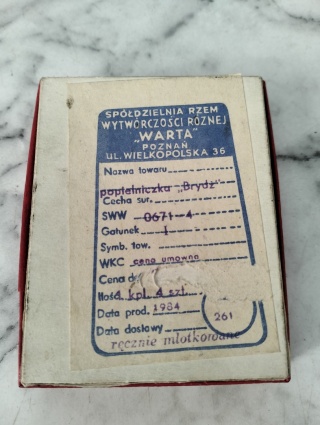 SPÓŁDZIELNIA RZEM
WYTWÓRCZOŚCI RÓŻNEJ
"WARTA"
POZNAŃ
UL. WIELKOPOLSKA 36
Nazwa towaru
popielniczka „Brydż"
Cecha sur.
SWW 0671-4
Gatunek I
Symb. tow.
WKC cena umowna
Cena d
Ilość kpl. 4 szt.
Data prod. 1984
Data dostawy
261
ręcznie młotkowane